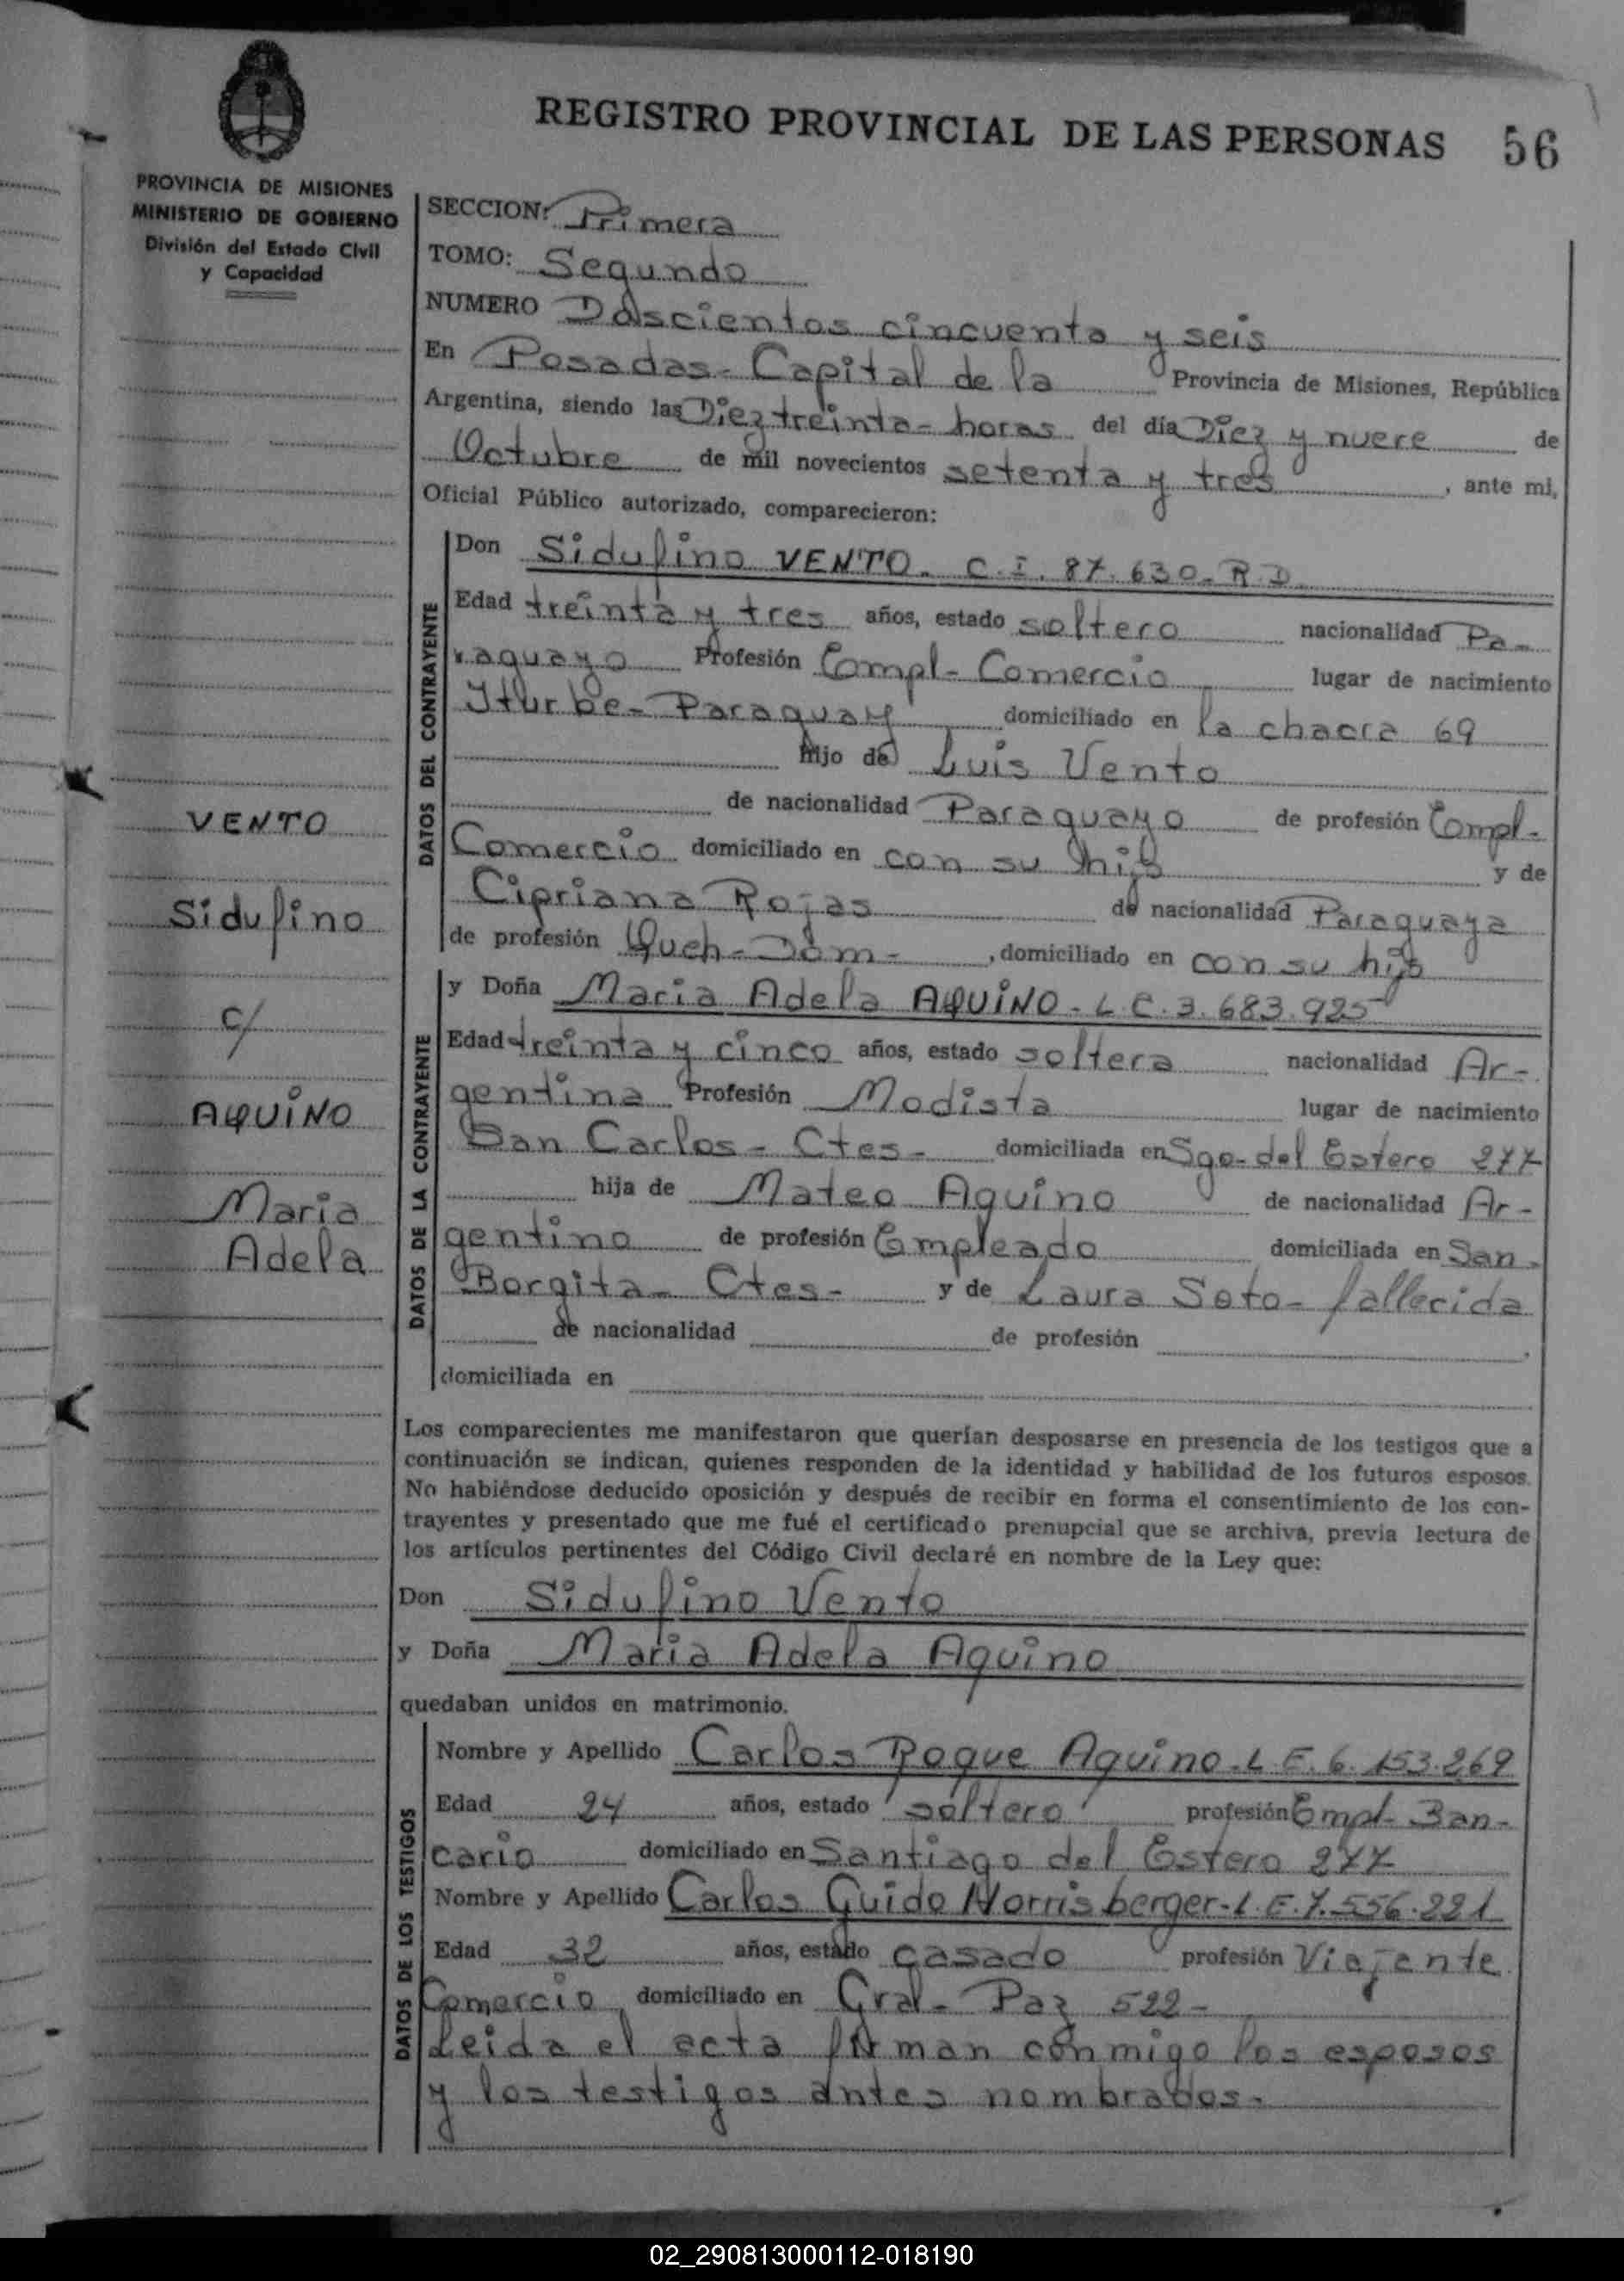 REGISTRO PROVINCIAL DE LAS PERSONAS 56
PROVINCIA DE MISIONES
MINISTERIO DE GOBIERNO
División del Estado Civil
y Capacidad
SECCION: Primera
TOMO: Segundo
NUMERO Doscientos cincuenta y seis
En Posadas - Capital de la Provincia de Misiones, República
Argentina, siendo las Diez treinta - horas del día Diez y nueve de
Octubre de mil novecientos setenta y tres, ante mi,
Oficial Público autorizado, comparecieron:
DATOS DEL CONTRAYENTE
Don Sidulfino VENTO - C.I. 87.630 - R.D.
Edad treinta y tres años, estado soltero nacionalidad Pa-
raguayo Profesión Empl - Comercio lugar de nacimiento
Iturbe - Paraguay domiciliado en la chacra 69
hijo de Luis Vento
de nacionalidad Paraguayo de profesión Empl -
Comercio domiciliado en con su hijo y de
Cipriana Rojas de nacionalidad Paraguaya
de profesión Queh - Dom -, domiciliado en con su hijo
VENTO
Sidulfino
c/
AQUINO
Maria
Adela
DATOS DE LA CONTRAYENTE
y Doña Maria Adela AQUINO - L.C. 3.683.925
Edad treinta y cinco años, estado soltera nacionalidad Ar-
gentina Profesión Modista lugar de nacimiento
San Carlos - Ctes - domiciliada en Sgo - del Estero 277
hija de Mateo Aquino de nacionalidad Ar-
gentino de profesión Empleado domiciliada en San
Borgita - Ctes - y de Laura Soto - fallecida
de nacionalidad de profesión
domiciliada en
Los comparecientes me manifestaron que querían desposarse en presencia de los testigos que a
continuación se indican, quienes responden de la identidad y habilidad de los futuros esposos.
No habiéndose deducido oposición y después de recibir en forma el consentimiento de los con-
trayentes y presentado que me fué el certificado prenupcial que se archiva, previa lectura de
los artículos pertinentes del Código Civil declaré en nombre de la Ley que:
Don Sidulfino Vento
y Doña Maria Adela Aquino
quedaban unidos en matrimonio.
DATOS DE LOS TESTIGOS
Nombre y Apellido Carlos Roque Aquino - L.E. 6.153.269
Edad 24 años, estado soltero profesión Empl - Ban-
cario domiciliado en Santiago del Estero 277
Nombre y Apellido Carlos Guido Norrisberger - L.E. 7.556.221
Edad 32 años, estado casado profesión Viajante
Comercio domiciliado en Gral - Paz 522 -
Leida el acta firman conmigo los esposos
y los testigos antes nombrados.
02_290813000112-018190